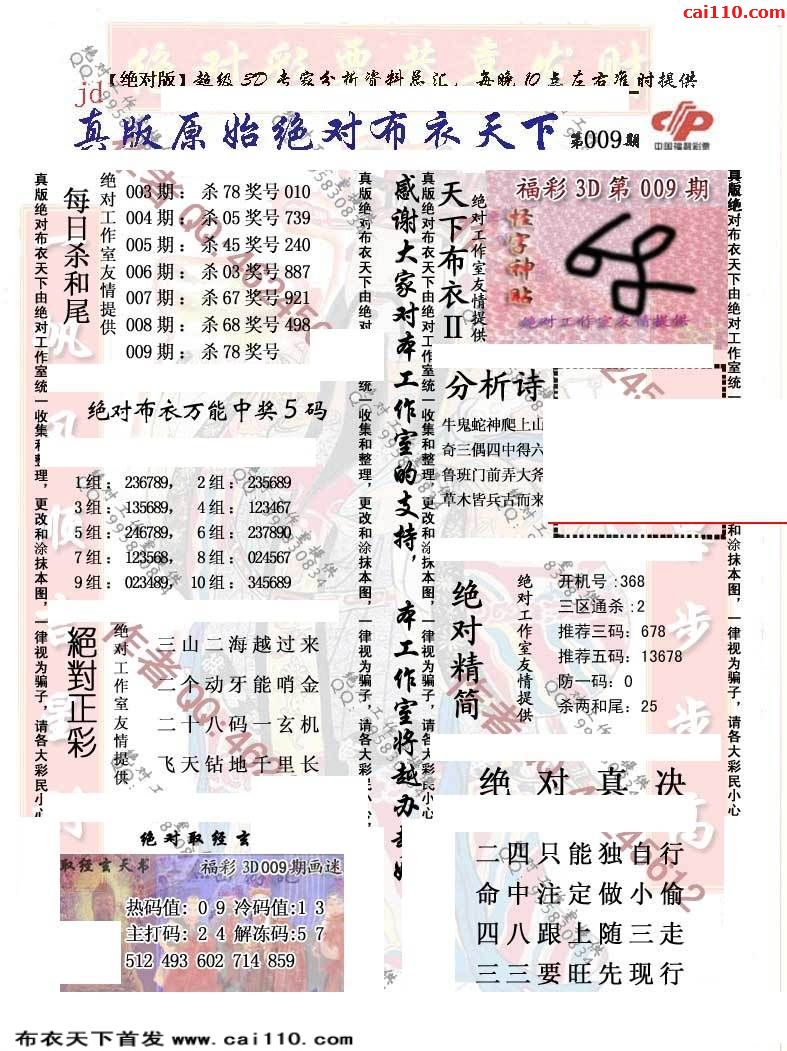 cai110.com
【绝对版】超级3D专家分析资料总汇，每晚10点左右准时提供
jd
真版原始绝对布衣天下 第009期
中国福利彩票
真版绝对布衣天下由绝对工作室统一收集和整理，更改和涂抹本图，一律视为骗子，请各大彩民小心
每日杀和尾
绝对工作室友情提供
003期：杀78奖号010
004期：杀05奖号739
005期：杀45奖号240
006期：杀03奖号887
007期：杀67奖号921
008期：杀68奖号498
009期：杀78奖号
绝对布衣万能中奖5码
1组：236789， 2组：235689
3组：135689， 4组：123467
5组：246789， 6组：237890
7组：123568， 8组：024567
9组：023489， 10组：345689
絕對正彩
绝对工作室友情提供
三山二海越过来
二个动牙能哨金
二十八码一玄机
飞天钻地千里长
绝对取经玄
取经玄天书 福彩3D009期画迷
热码值：0 9 冷码值:1 3
主打码：2 4 解冻码:5 7
512 493 602 714 859
真版绝对布衣天下由绝对
统一收集和整理，更改和涂抹本图，一律视为骗子，请各大彩民小心
感谢大家对本工作室的支持，本工作室将越办越好
真版绝对布衣天下由绝对工作室统一收集和整理，更改和涂抹本图，一律视为骗子，请各大彩民小心
天下布衣II
绝对工作室友情提供
福彩3D第009期
怪字神贴
绝对工作室友情提供
分析诗
牛鬼蛇神爬上山
奇三偶四中得六
鲁班门前弄大斧
草木皆兵古而来
绝对精简
绝对工作室友情提供
开机号:368
三区通杀:2
推荐三码：678
推荐五码：13678
防一码：0
杀两和尾：25
绝对真决
二四只能独自行
命中注定做小偷
四八跟上随三走
三三要旺先现行
真版绝对布衣天下由绝对工作室统一
和涂抹本图，一律视为骗子，请各大彩民小心
布衣天下首发 www.cai110.com